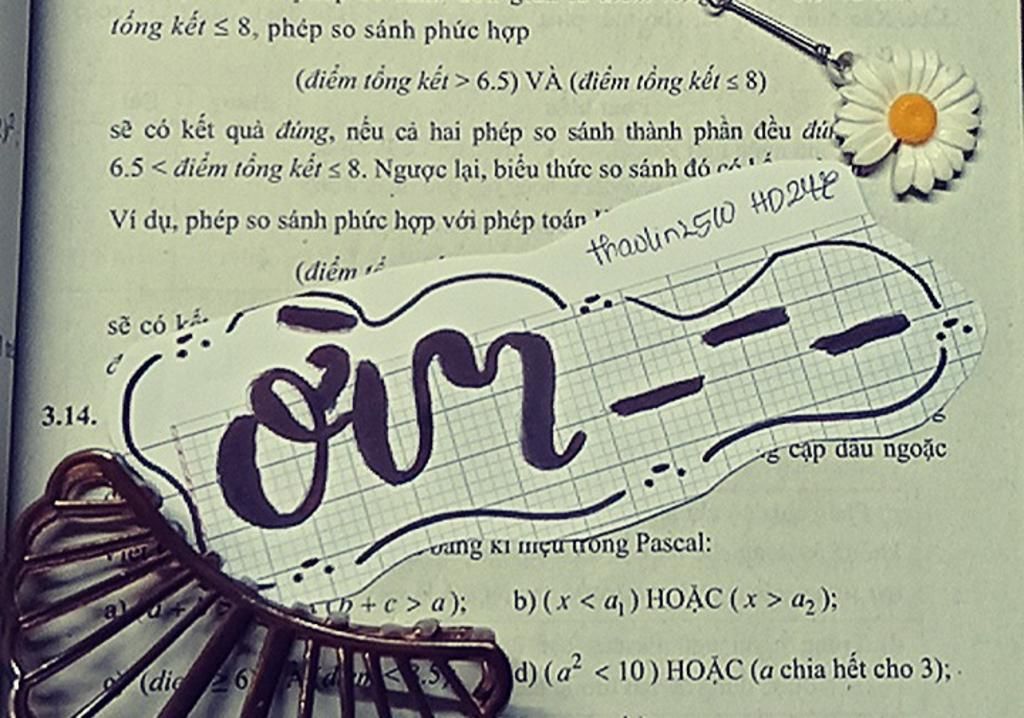 tổng kết ≤ 8, phép so sánh phức hợp
(điểm tổng kết > 6.5) VÀ (điểm tổng kết ≤ 8)
sẽ có kết quả đúng, nếu cả hai phép so sánh thành phần đều
6.5 < điểm tổng kết ≤ 8. Ngược lại, biểu thức so sánh đó
Ví dụ, phép so sánh phức hợp với phép toán
thaolin2510 HD247
(điểm
sẽ có
ơn
3.14.
cặp dấu ngoặc
bằng kí hiệu trong Pascal:
(b + c > a); b) (x < a₁) HOẶC (x > a₂);
d) (a² < 10) HOẶC (a chia hết cho 3);